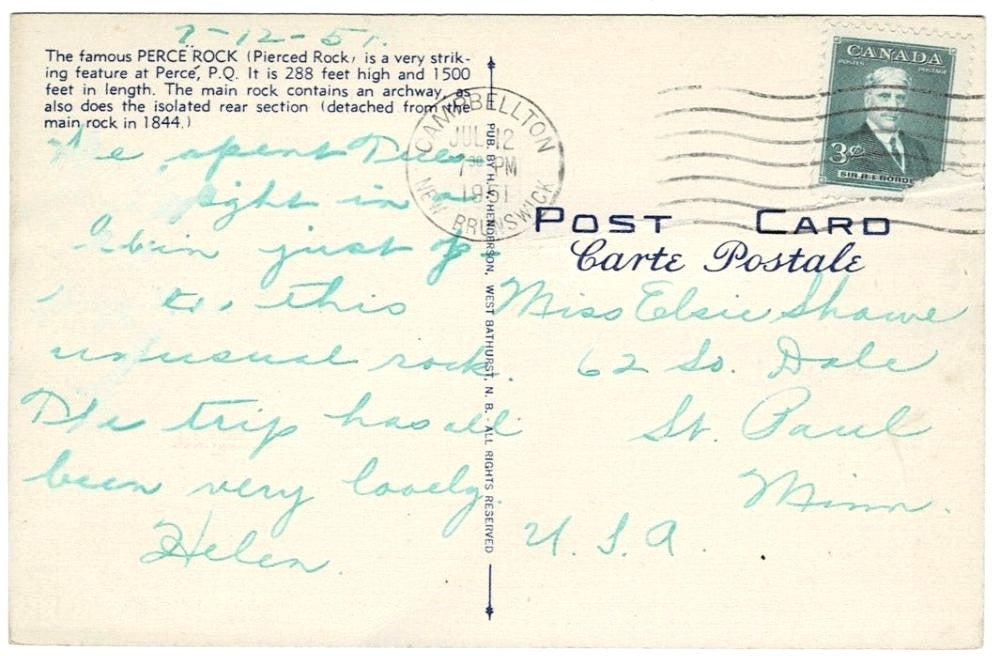 7-12-51.
The famous PERCE ROCK (Pierced Rock) is a very strik-
ing feature at Percé, P.Q. It is 288 feet high and 1500
feet in length. The main rock contains an archway, as
also does the isolated rear section (detached from the
main rock in 1844.)
We spent Tues.
night in a
cabin just op
to this
unusual rock.
The trip has all
been very lovely.
Helen.
PUB. BY H. V. HENDERSON, WEST BATHURST, N. B. ALL RIGHTS RESERVED
CAMPBELLTON
JUL 12
7 30 PM
1951
NEW BRUNSWICK
CANADA
POSTES POSTAGE
3¢
SIR R. L. BORDE
POST CARD
Carte Postale
Miss Elsie Shawe
62 So. Dale
St. Paul
Minn.
U.S.A.